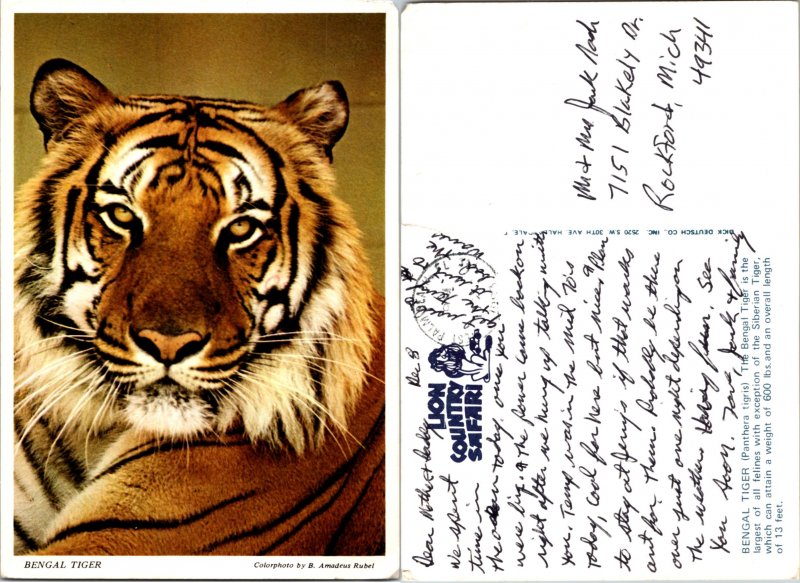 BENGAL TIGER
Colorphoto by B. Amadeus Rubel
Mr & Mrs Jack
7151 Blakely Dr.
Rockford, Mich
49341
DICK DEUTSCH CO., INC. 2520 S.W. 30TH AVE HAL
LION
COUNTRY
SAFARI
Dec 3
Dear Mother & Dad,
We spent
time in
the today, one
were big. The power came back on
right after we hung up talking with
you. Temp was in the mid 70s
today, cool for here but nice. Plan
to stay at Jerrys if that works
out for them. Probably be there
over just one night depending on
the weather. See
You soon. Love,
BENGAL TIGER (Panthera tigris) The Bengal Tiger is the
largest of all felines with exception of the Siberian Tiger,
which can attain a weight of 600 lbs. and an overall length
of 13 feet.